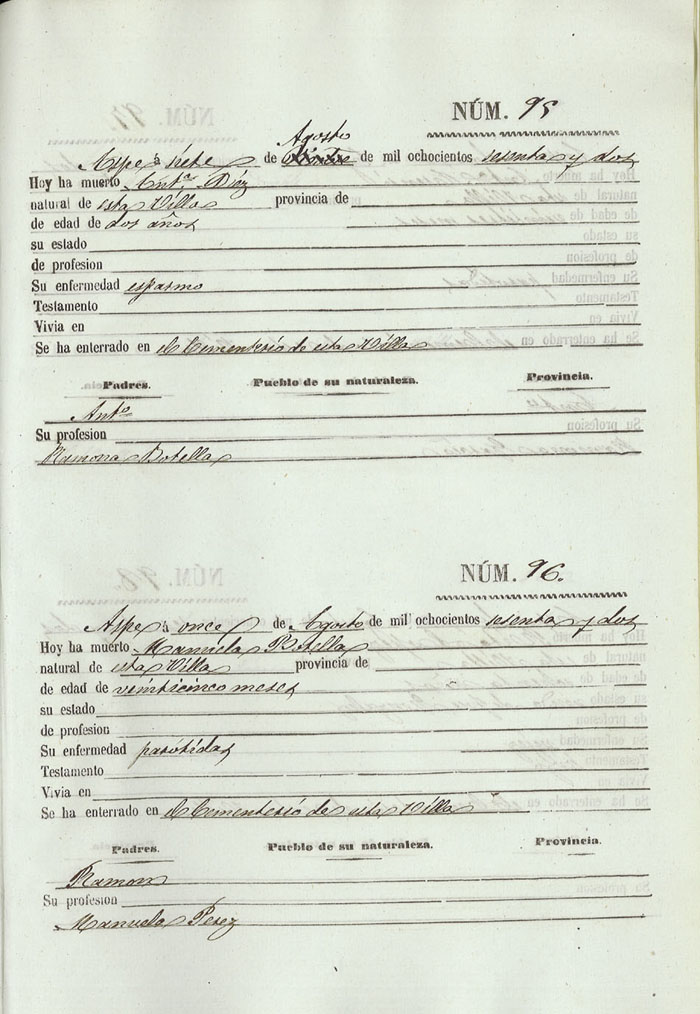 NÚM. 95
Agosto
Aspe á siete de de mil ochocientos sesenta y dos
Hoy ha muerto Antª. Diez
natural de esta Villa provincia de
de edad de dos años
su estado
de profesion
Su enfermedad espasmo
Testamento
Vivia en
Se ha enterrado en el Cementerio de esta Villa
Padres. Pueblo de su naturaleza. Provincia.
Antº
Su profesion
Ramona Botella
NÚM. 96.
Aspe á once de Agosto de mil ochocientos sesenta y dos
Hoy ha muerto Manuela Botella
natural de esta Villa provincia de
de edad de veinticinco meses
su estado
de profesion
Su enfermedad parótidas
Testamento
Vivia en
Se ha enterrado en el Cementerio de esta Villa
Padres. Pueblo de su naturaleza. Provincia.
Ramon
Su profesion
Manuela Perez